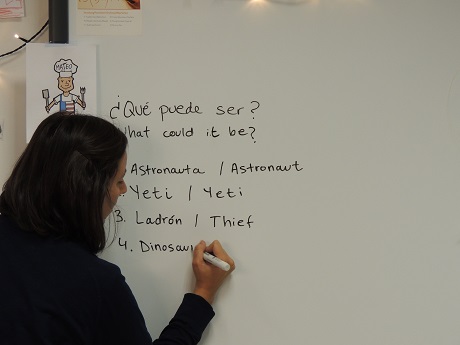 MATEO
¿Qué puede ser?
What could it be?
Astronauta / Astronaut
Yeti / Yeti
3. Ladrón / Thief
4. Dinosau